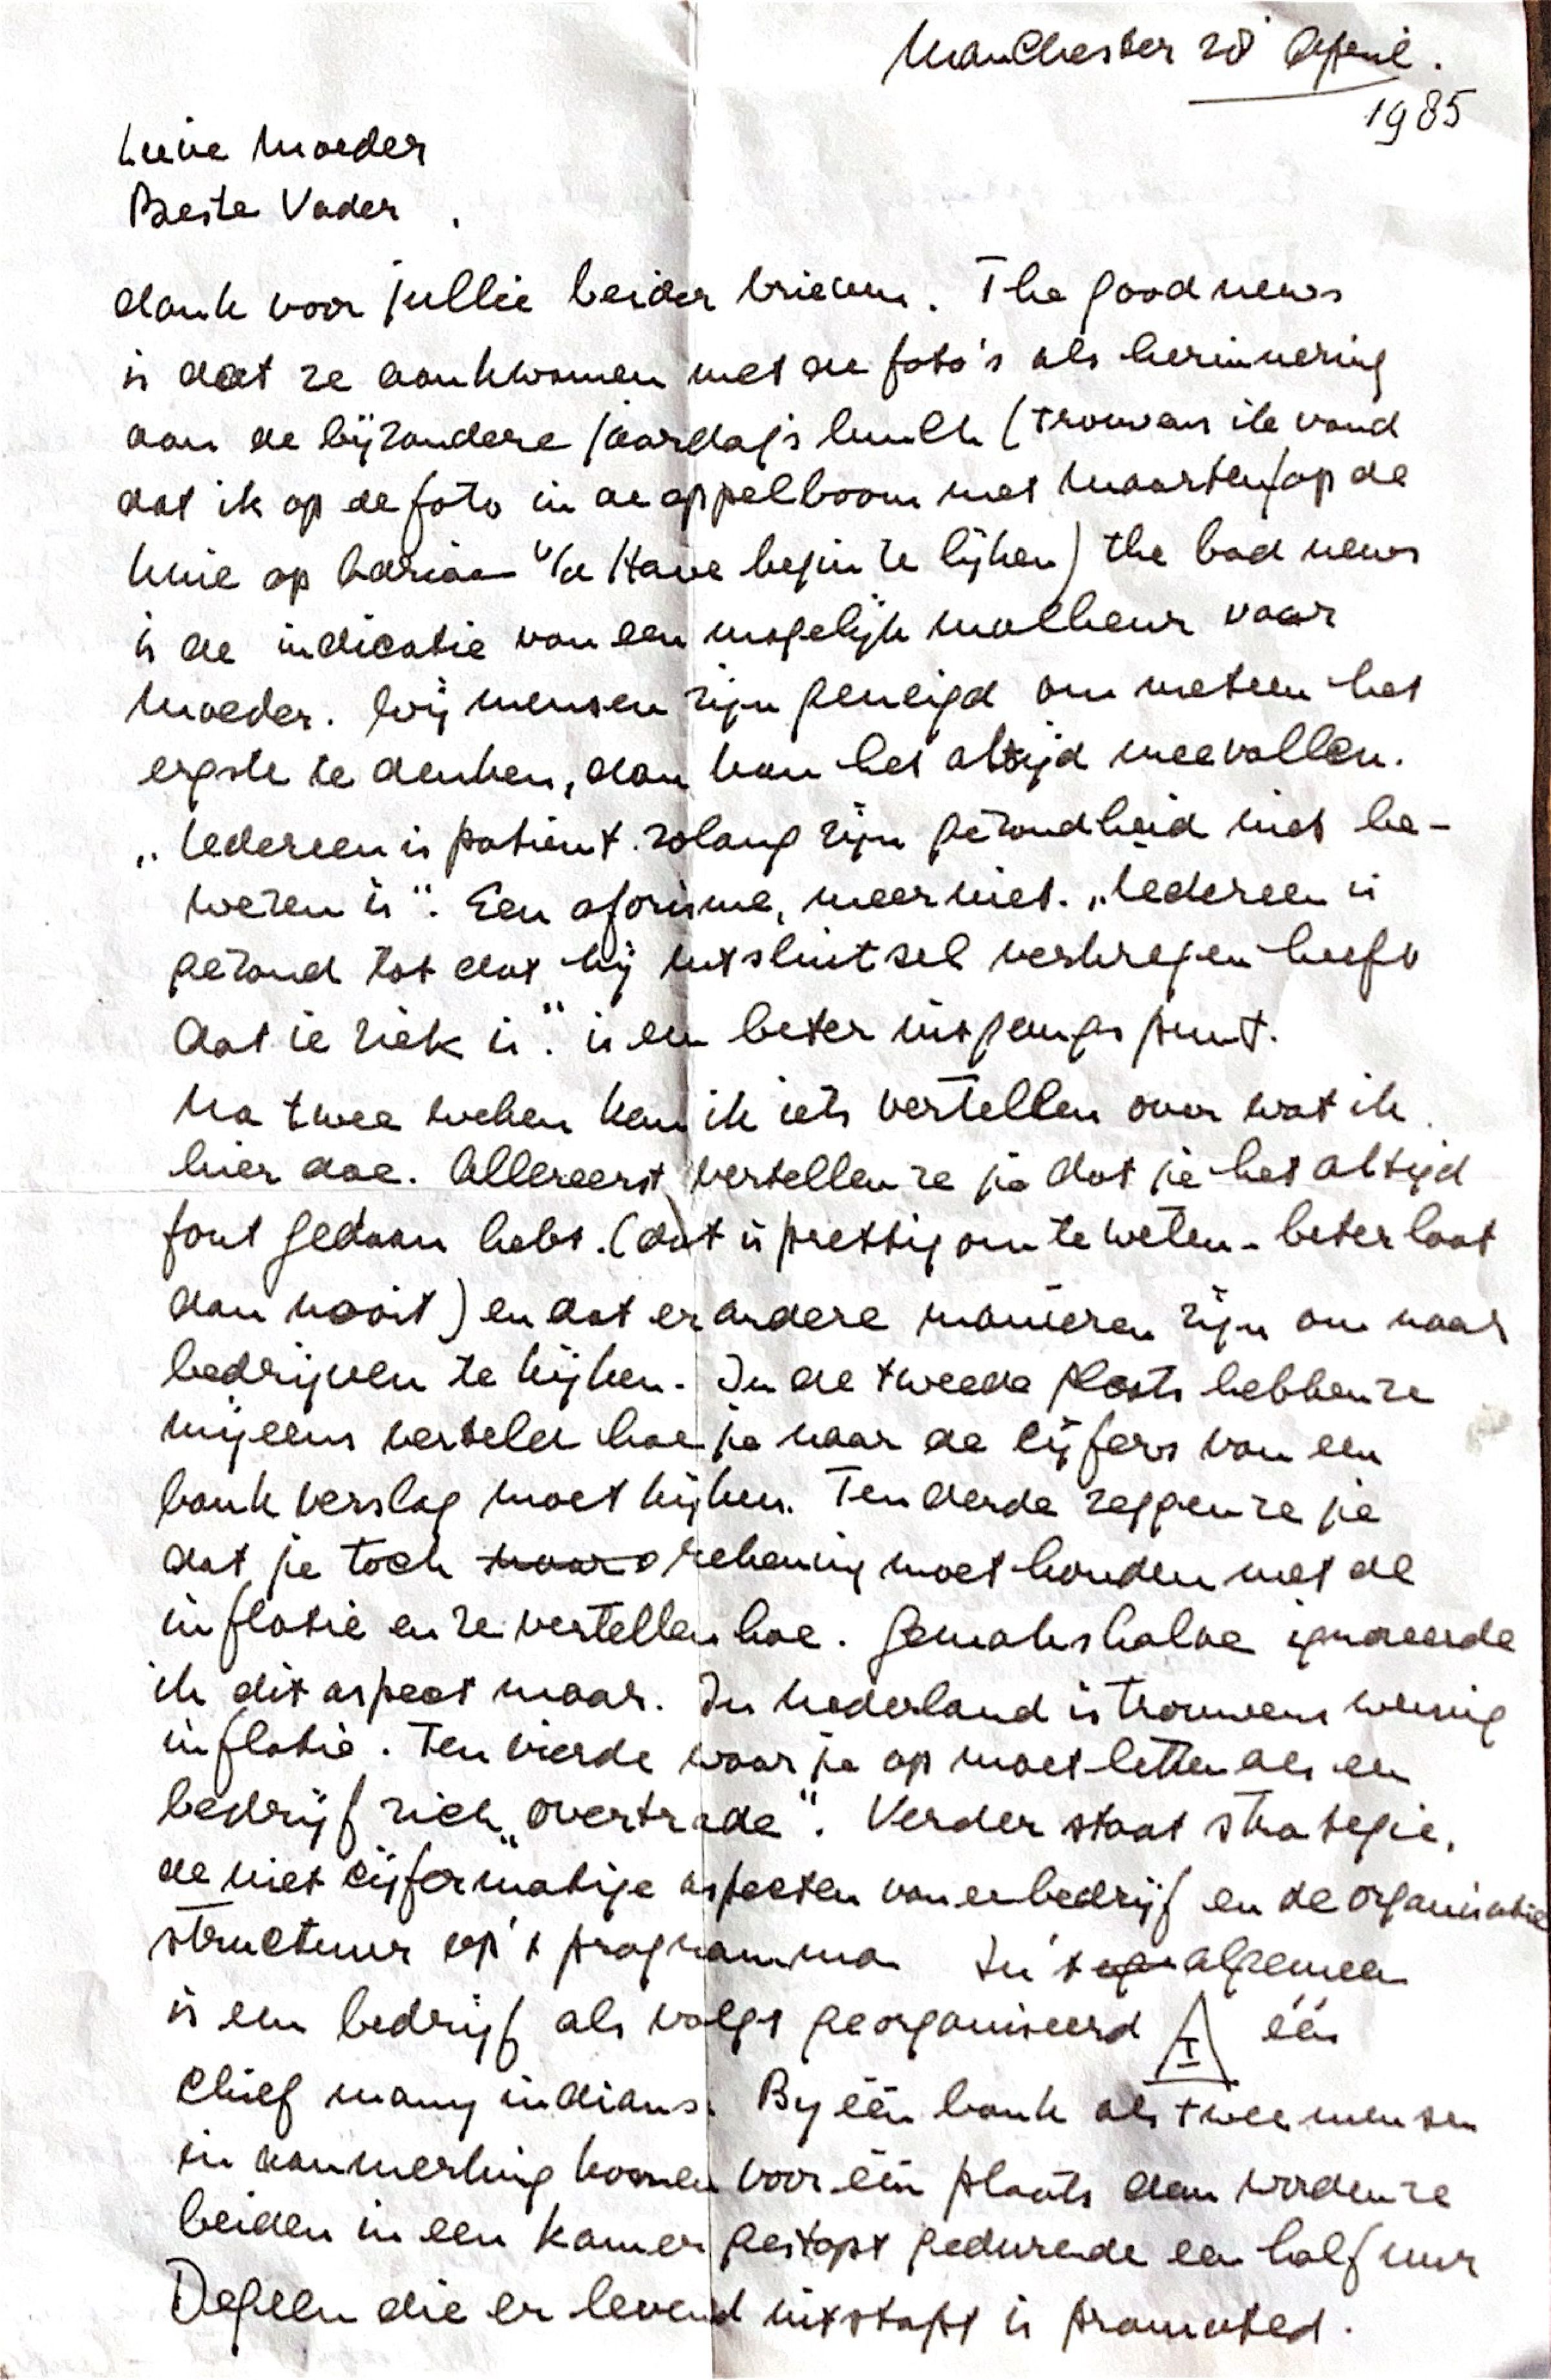 Manchester 28 April.
1985
Lieve Moeder
Beste Vader.
dank voor jullie beider brieven. The good news
is dat ze aankwamen met de foto's als herinnering
aan de bijzondere jaardags lunch (trouwens ik vond
dat ik op de foto in de appelboom met Maarten op de
knie op Adriaan v/d Have begin te lijken) the bad news
is de indicatie van een mogelijk malheur voor
Moeder. Wij mensen zijn geneigd om meteen het
ergste te denken, dan kan het altijd meevallen.
„Iedereen is patient zolang zijn gezondheid niet be-
wezen is". Een aforisme, meer niet. „Iedereen is
gezond tot dat hij uitsluitsel verkregen heeft
dat ie ziek is." is een beter uitgangspunt.
Na twee weken kan ik iets vertellen over wat ik
hier doe. Allereerst vertellen ze je dat je het altijd
fout gedaan hebt. (dat is prettig om te weten - beter laat
dan nooit) en dat er andere manieren zijn om naar
bedrijven te kijken. In de tweede plaats hebben ze
mij eens verteld hoe je naar de cijfers van een
bank verslag moet kijken. Ten derde zeggen ze je
dat je toch rekening moet houden met de
inflatie en ze vertellen hoe. Gemakshalve ignoreerde
ik dit aspect maar. In Nederland is trouwens weinig
inflatie. Ten vierde waar je op moet letten als een
bedrijf zich „overtrade". Verder staat strategie,
de niet cijfermatige aspecten van een bedrijf en de organisatie
structuur op 't programma In 't algemeen
is een bedrijf als volgt georganiseerd I één
chief many indians. By één bank als twee mensen
in aanmerking komen voor één plaats dan worden ze
beiden in een kamer gestopt gedurende een half uur
Degeen die er levend uitstapt is promoted.